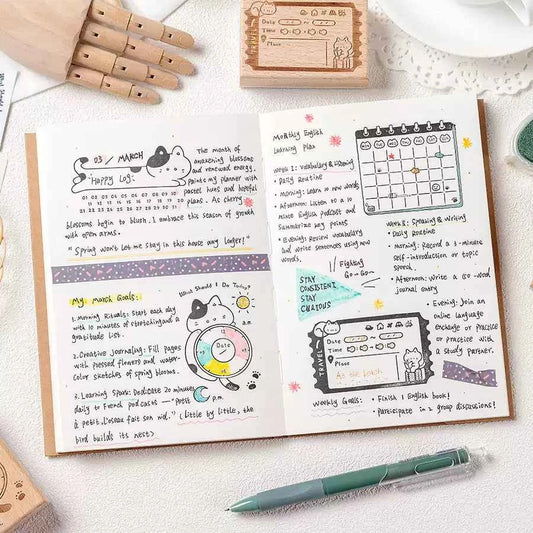 Date :
Time :
Place
TRAVEL
03 / MARCH
Happy Log:
01 02 03 04 05 06 07 08 09 10
11 12 13 14 15 16 17 18 19 20
21 22 23 24 25 26 27 28 29 30 31
The month of
awakening blossoms
and renewed energy,
paints my planner with
pastel hues and hopeful
plans. As cherry
blossoms begin to blush, I embrace this season of growth
with open arms.
"Spring won't let me stay in this house any longer!"
My March Goals:
1. Morning Rituals: Start each day
with 10 minutes of stretching and a
gratitude list.
2. Creative Journaling: Fill pages
with pressed flowers and water-
color sketches of spring blooms.
3. Learning Spark: Dedicate 20 minutes
daily to French podcasts — "Petit
à petit, l'oiseau fait son nid." (Little by little, the
bird builds its nest>
What Should I Do Today?
a.m.
Date
p.m.
Monthly English
Learning Plan
Week 1: Vocabulary & Listening
• Daily Routine
• Morning: Learn 10 new words
• Afternoon: Listen to a 10
minute English podcast and
summarize key points
• Evening: Review vocabulary
and write sentences using new
words.
Fighting
Go-Go-
STAY
CONSISTENT
STAY
CURIOUS
Week 2: Speaking & Writing
• Daily Routine
• Morning: Record a 3-minute
self-introduction or topic
speech.
• Afternoon: Write a 100-word
journal entry
• Evening: Join an
online language
exchange or practice
or practice with
a study partner.
TRAVEL
Date :
Time :
Place
At the beach
Weekly Goals:
• Finish 1 English book!
• Participate in 2 group discussions!